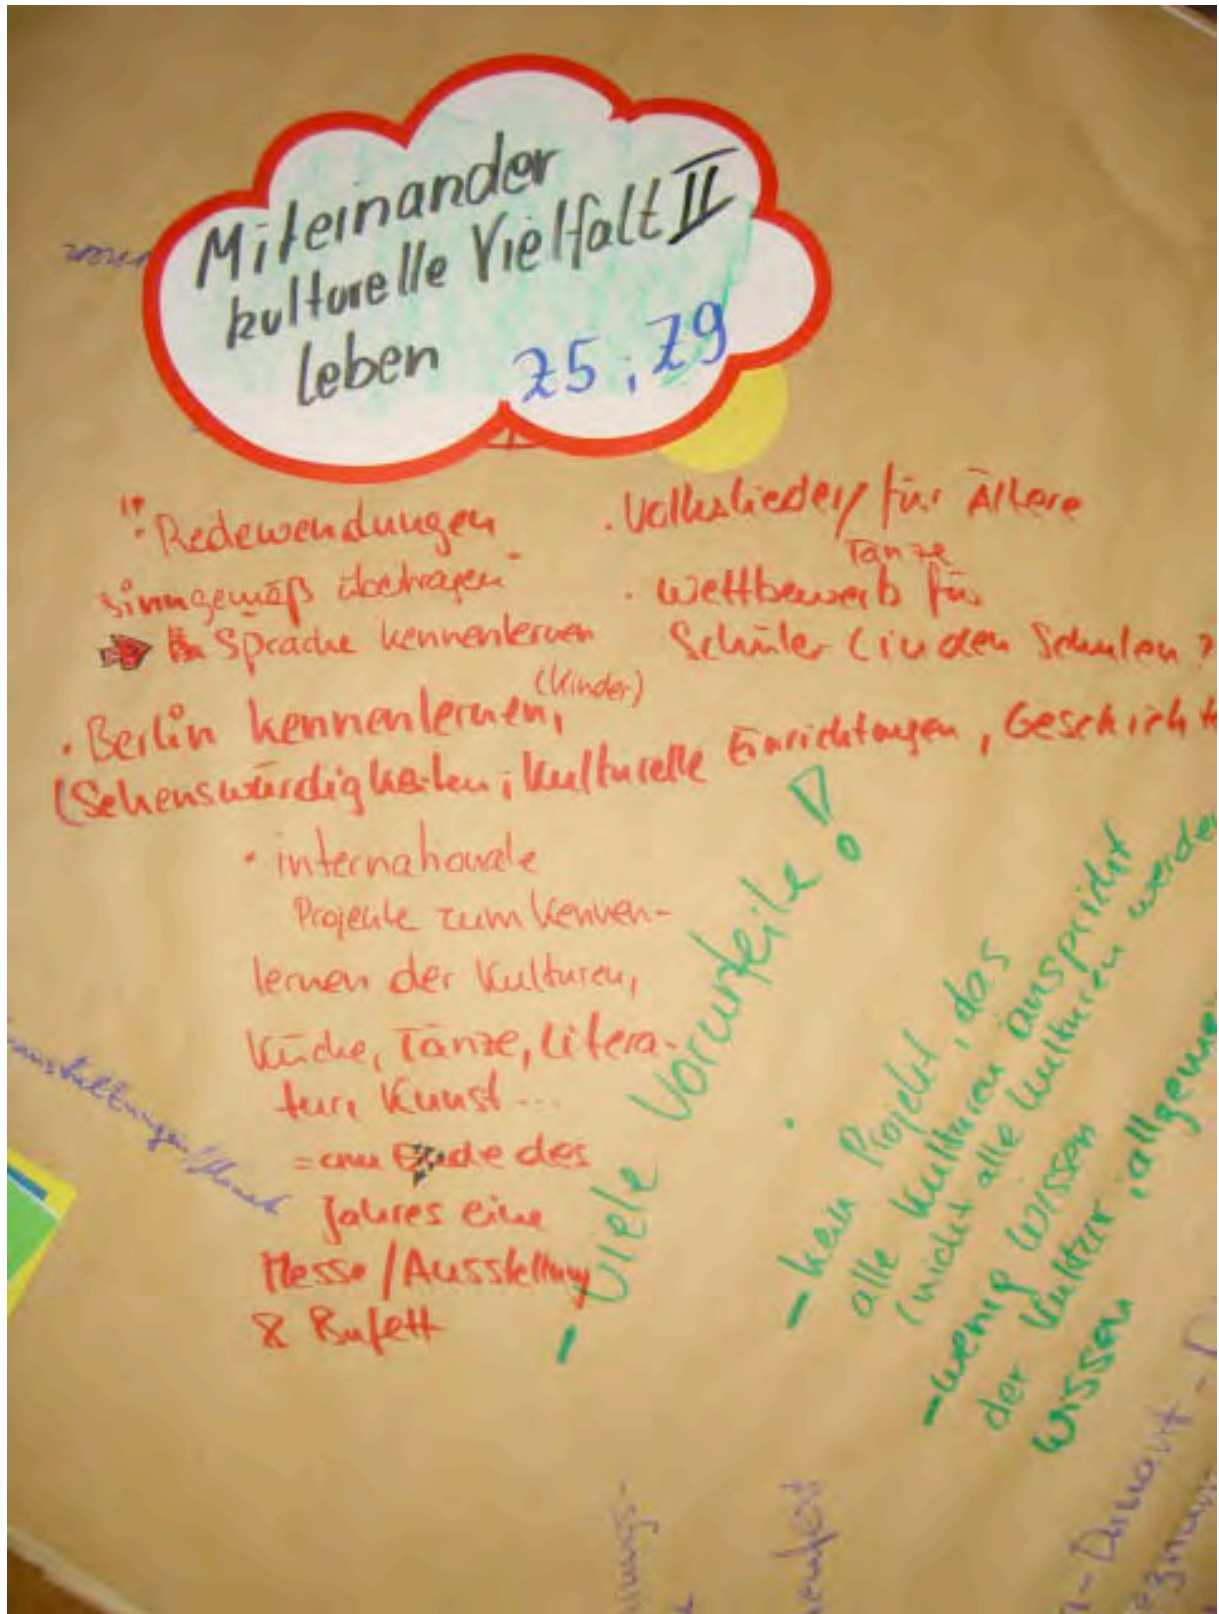 Miteinander
kulturelle Vielfalt II
leben
Z5; Z9
"· Redewendungen
sinngemäß übertragen"
Sprache kennenlernen
· Volkslieder / für Ältere
Tänze
· Wettbewerb für
Schüler (in den Schulen?
· Berlin kennenlernen, (Kinder)
(Sehenswürdigkeiten; kulturelle Einrichtungen, Geschichte
· internationale
Projekte zum Kennen-
lernen der Kulturen,
Küche, Tänze, Litera-
tur, Kunst...
= am Ende des
Jahres eine
Messe / Ausstellung
& Bufett
- Viele Vorurteile!
- kein Projekt, das
alle Kulturen anspricht
(nicht alle Kulturen werden
- wenig Wissen
der Kultur, allgemein
wissen